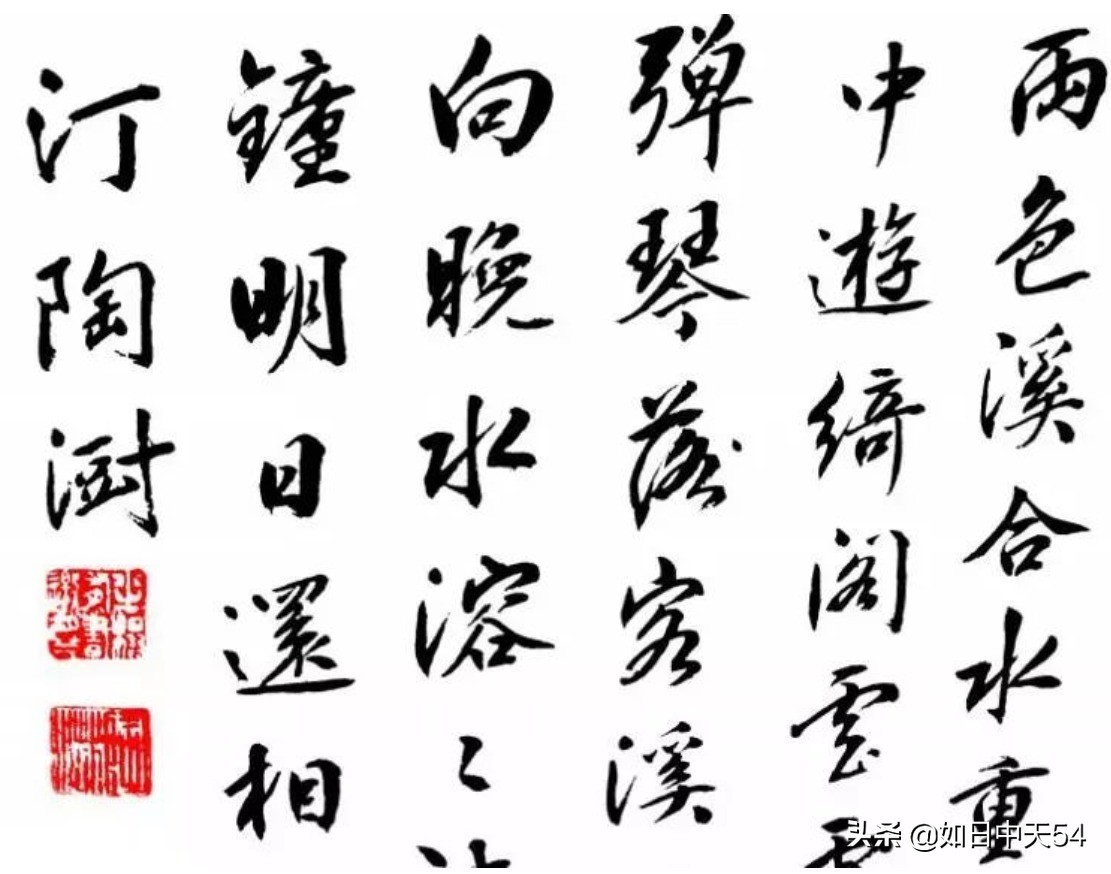 雨色溪合水重
中遊綺阁雲
弹琴落客溪
向晚水溶々
鐘明日還相
汀陶澍
头条 @如日中天54